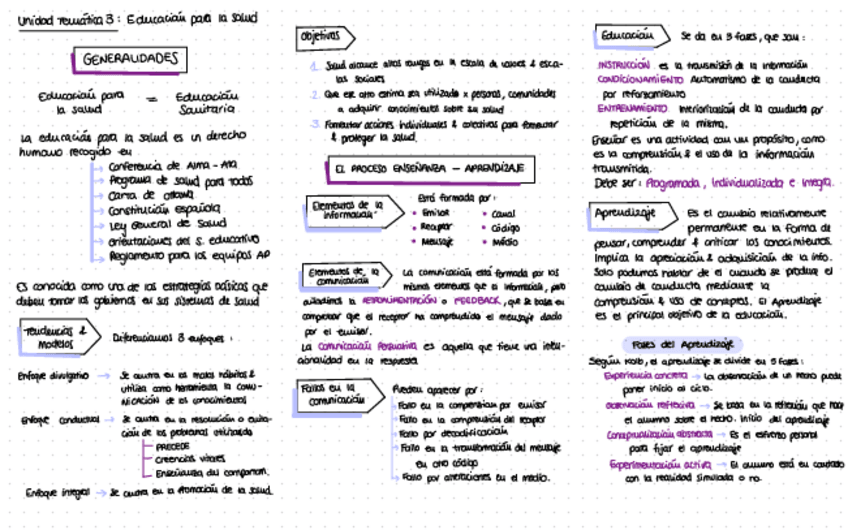 Unidad Temática 3: Educación para la salud
GENERALIDADES
Educación para la salud = Educación Sanitaria
La educación para la salud es un derecho
humano recogido en
→ Conferencia de Alma-Ata
→ Programa de salud para todos
→ Carta de Ottawa
→ Constitución española
→ Ley General de Salud
→ Orientaciones del S. educativo
→ Reglamento para los equipos AP
Es conocida como una de las estrategias básicas que
deben tomar los gobiernos en sus sistemas de salud
Tendencias &
modelos
Diferenciamos 3 enfoques:
Enfoque divulgativo → Se centra en los malos hábitos &
utiliza como herramienta la comu-
nicación de los conocimientos
Enfoque conductual → Se centra en la resolución o evita-
ción de los problemas utilizando
PRECEDE
Creencias vitales
Enseñanza del comportam.
Enfoque integral → Se centra en la Promoción de la salud
Objetivos
1. Salud alcance altos rangos en la escala de valores & esca-
las sociales
2. Que ese alto estima sea utilizado x personas, comunidades
a adquirir conocimientos sobre su salud
3. Fomentar acciones individuales & colectivas para fomentar
& proteger la salud.
EL PROCESO ENSEÑANZA - APRENDIZAJE
Elementos de la
información
Está formada por:
• Emisor • Canal
• Receptor • Código
• Mensaje • Medio
Elementos de la
comunicación
La comunicación está formada por los
mismos elementos que la información, pero
añadimos la RETROALIMENTACIÓN o FEEDBACK, que se basa en
comprobar que el receptor ha comprendido el mensaje dado
por el emisor.
La Comunicación Persuasiva es aquella que tiene una inten-
cionalidad en la respuesta
Fallos en la
comunicación
Pueden aparecer por:
→ Fallo en la comprensión por emisor
→ Fallo en la comprensión del receptor
→ Fallo por decodificación
→ Fallo en la transformación del mensaje
en otro código
→ Fallo por alteraciones en el medio.
Educación
Se da en 3 fases, que son:
INSTRUCCIÓN es la transmisión de la información
CONDICIONAMIENTO Automatismo de la conducta
por reforzamiento
ENTRENAMIENTO Interiorización de la conducta por
repetición de la misma.
Enseñar es una actividad con un propósito, como
es la comprensión & el uso de la información
transmitida.
Debe ser: Programada, individualizada e integra.
Aprendizaje
Es el cambio relativamente
permanente en la forma de
pensar, comprender & criticar los conocimientos.
Implica la apreciación & adquisición de la info.
Solo podemos hablar de él cuando se produce el
cambio de conducta mediante la
comprensión & uso de conceptos. El Aprendizaje
es el principal objetivo de la educación.
Fases del Aprendizaje
Según Kolb, el aprendizaje se divide en 5 fases:
Experiencia concreta → La observación de un hecho puede
poner inicio al ciclo.
Observación reflectiva → Se basa en la reflexión que hace
el alumno sobre el hecho. Inicio del aprendizaje
Conceptualización abstracta → Es el esfuerzo personal
para fijar el aprendizaje
Experimentación activa → El alumno está en contacto
con la realidad simulada o no.